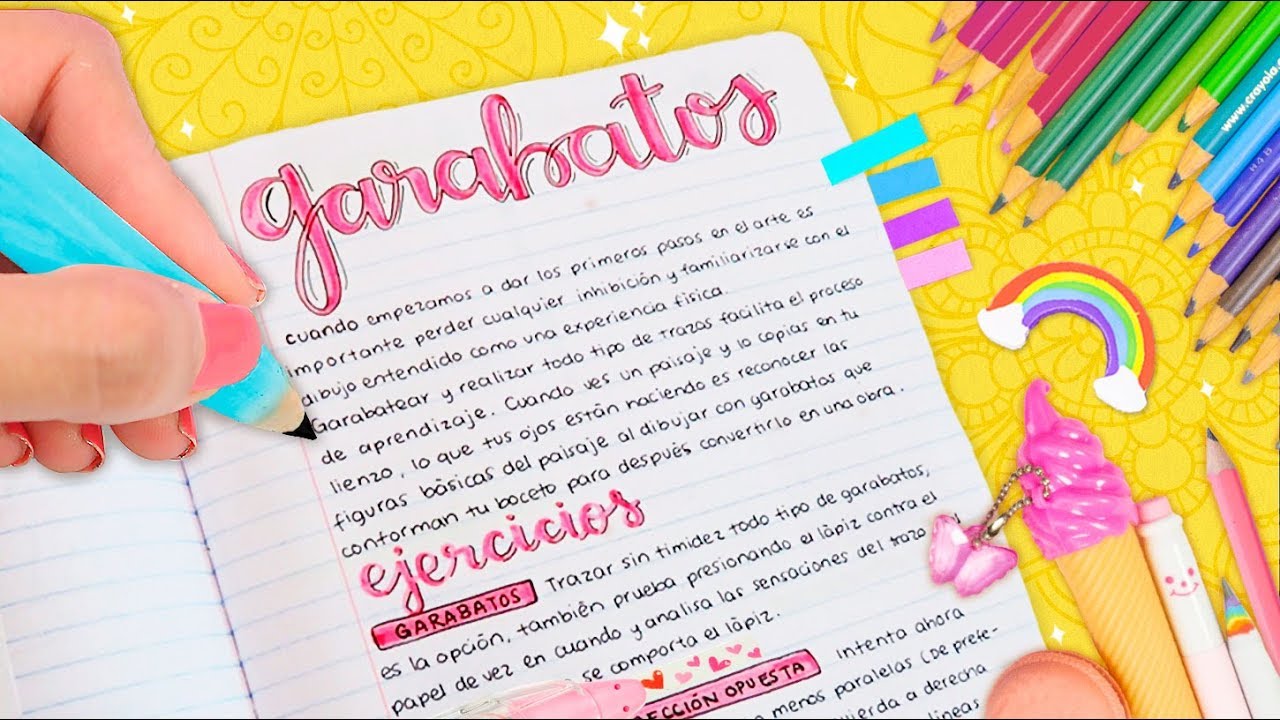 garabatos
cuando empezamos a dar los primeros pasos en el arte es
importante perder cualquier inhibición y familiarizarse con el
dibujo entendido como una experiencia física.
Garabatear y realizar todo tipo de trazas facilita el proceso
de aprendizaje. Cuando ves un paisaje y lo copias en tu
lienzo, lo que tus ojos están haciendo es reconocer las
figuras básicas del paisaje al dibujar con garabatos que
conforman tu boceto para después convertirlo en una obra.
ejercicios
GARABATOS Trazar sin timidez todo tipo de garabatos,
es la opción, también prueba presionando el lápiz contra el
papel de vez en cuando y analisa las sensaciones del trazo
se comporta el lápiz.
OPUESTA intenta ahora
menos paralelas (De prefe-
a derecha
lineas
www.crayola.